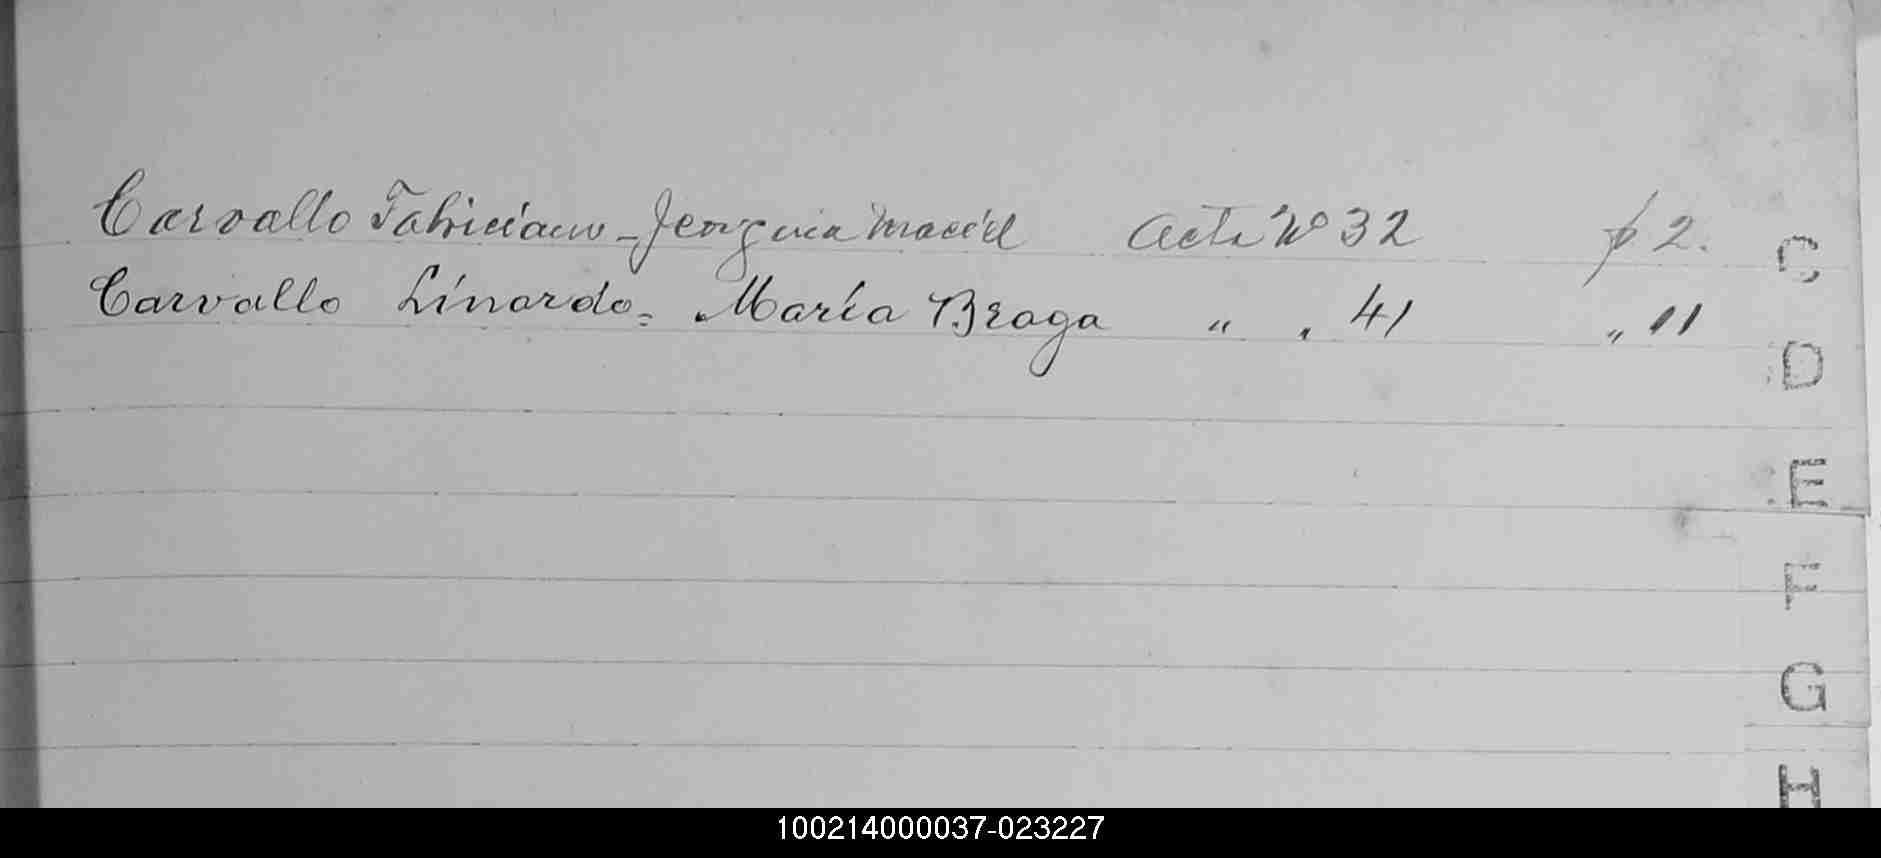 Carvallo Fabriciano - Jeorgina Maciél Acta Nº 32 f 2.
Carvallo Linardo = María Braga " " 41 " 11
C
D
E
F
G
H
100214000037-023227